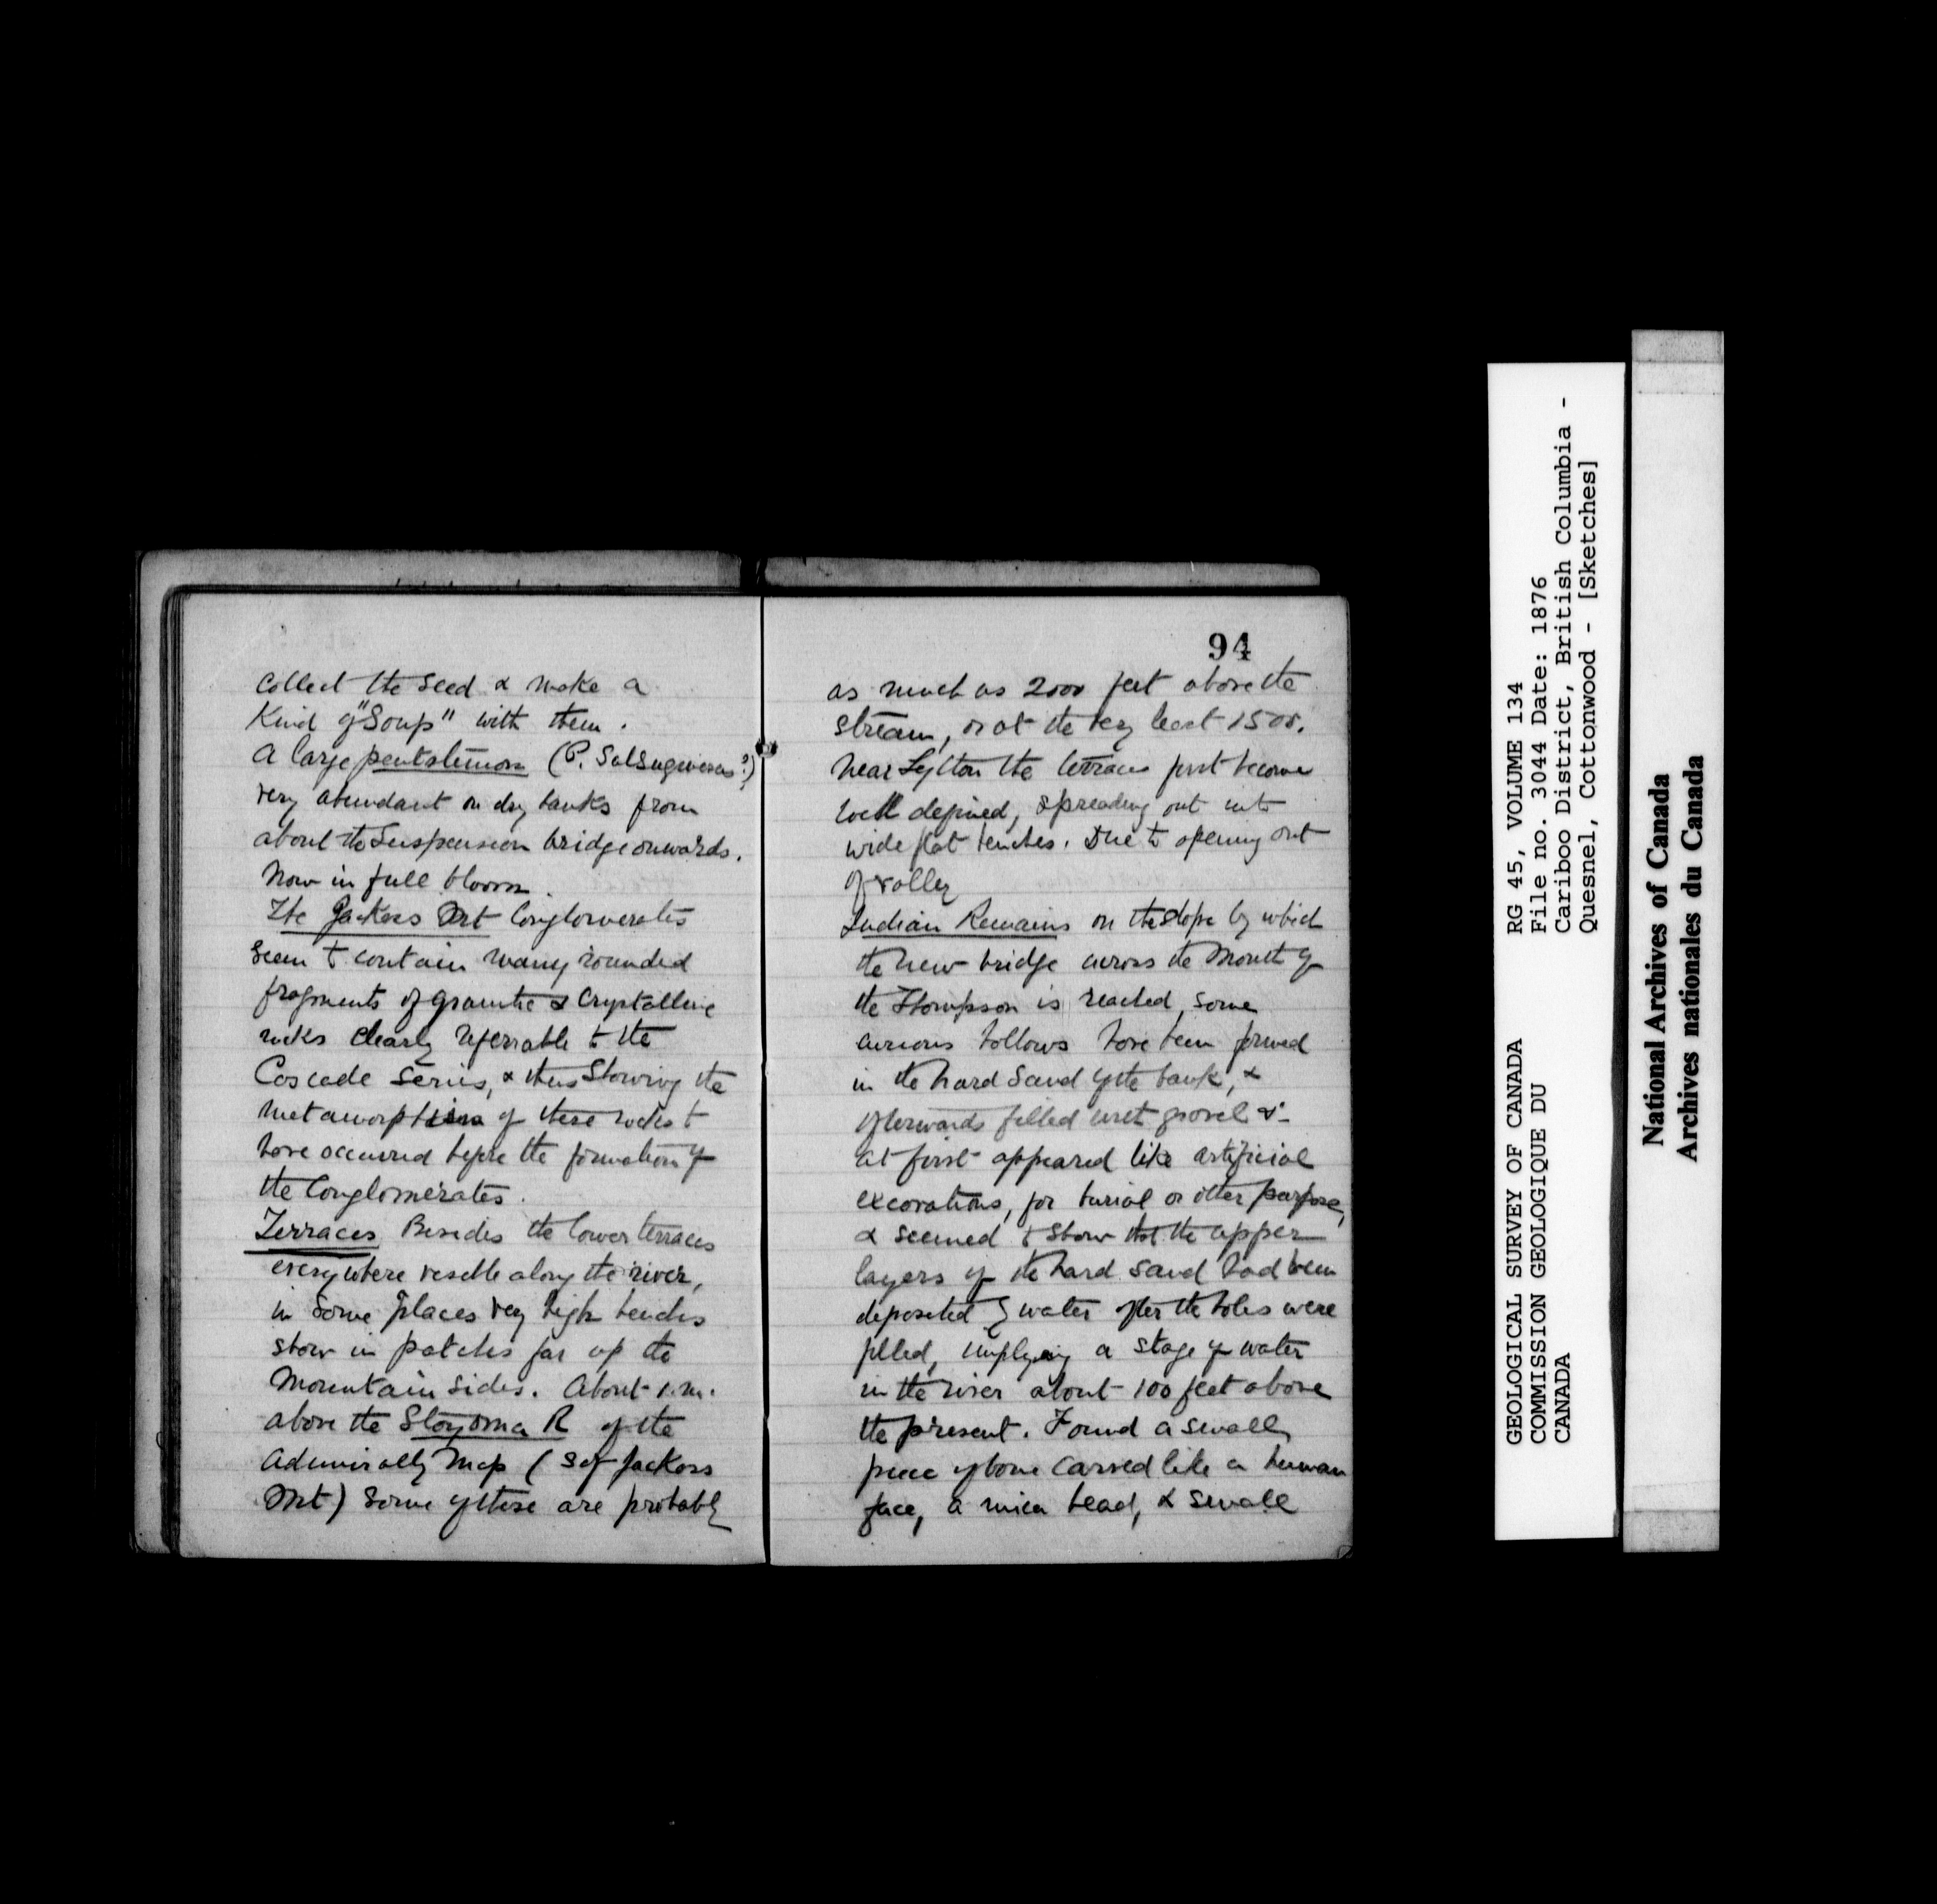 collect the seed & make a
kind of "Soup" with them.
A large pentstemon (P.
very abundant on dry banks from
about the Suspension bridge onwards.
Now in full bloom.
The Jackass Mt Conglomerates
seem to contain many rounded
fragments of granitic & crystalline
rocks clearly referrable to the
Cascade series, & thus showing the
metamorphism of these rocks to
have occurred before the formation of
the Conglomerates.
Terraces Besides the lower terraces
everywhere visible along the river,
in some places very high benches
show in patches far up the
mountain sides. About 1 m.
above the Stoyoma R of the
Admiralty Map (S of Jackass
Mt) some of these are probably
94
as much as 2000 feet above the
stream, or at the very least 1500.
Near Lytton the terraces first become
well defined, spreading out into
wide flat benches. Due to opening out
of valley
Indian Remains on the slope by which
the new bridge across the mouth of
the Thompson is reached, some
curious hollows have been formed
in the hard sand of the bank, &
afterwards filled with gravel &c
at first appeared like artificial
excavations, for burial or other purpose,
& seemed to show that the upper
layers of the hard sand had been
deposited by water after the holes were
filled, implying a stage of water
in the river about 100 feet above
the present. Found a small
piece of bone carved like a human
face, a mica bead, & small
GEOLOGICAL SURVEY OF CANADA
COMMISSION GEOLOGIQUE DU
CANADA
RG 45, VOLUME 134
File no. 3044 Date: 1876
Cariboo District, British Columbia -
Quesnel, Cottonwood - [Sketches]
National Archives of Canada
Archives nationales du Canada